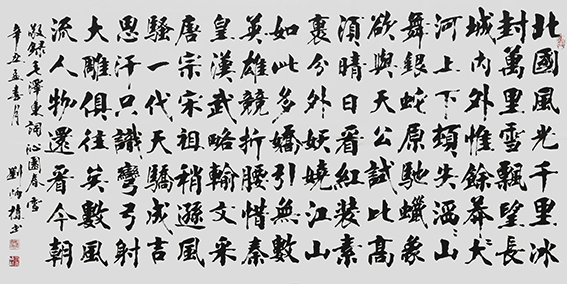 北國風光千里冰
封萬里雪飄望長
城内外惟餘莽々大
河上下頓失滔々山
舞銀蛇原馳蠟象
欲與天公試比高
須晴日看紅裝素
裹分外妖嬈江山
如此多嬌引無數
英雄競折腰惜秦
皇漢武略輸文采
唐宗宋祖稍遜風
騷一代天驕成吉
思汗只識彎弓射
大雕俱往矣數風
流人物還看今朝
敬録毛澤東詞沁園春雪
辛丑月
劉書